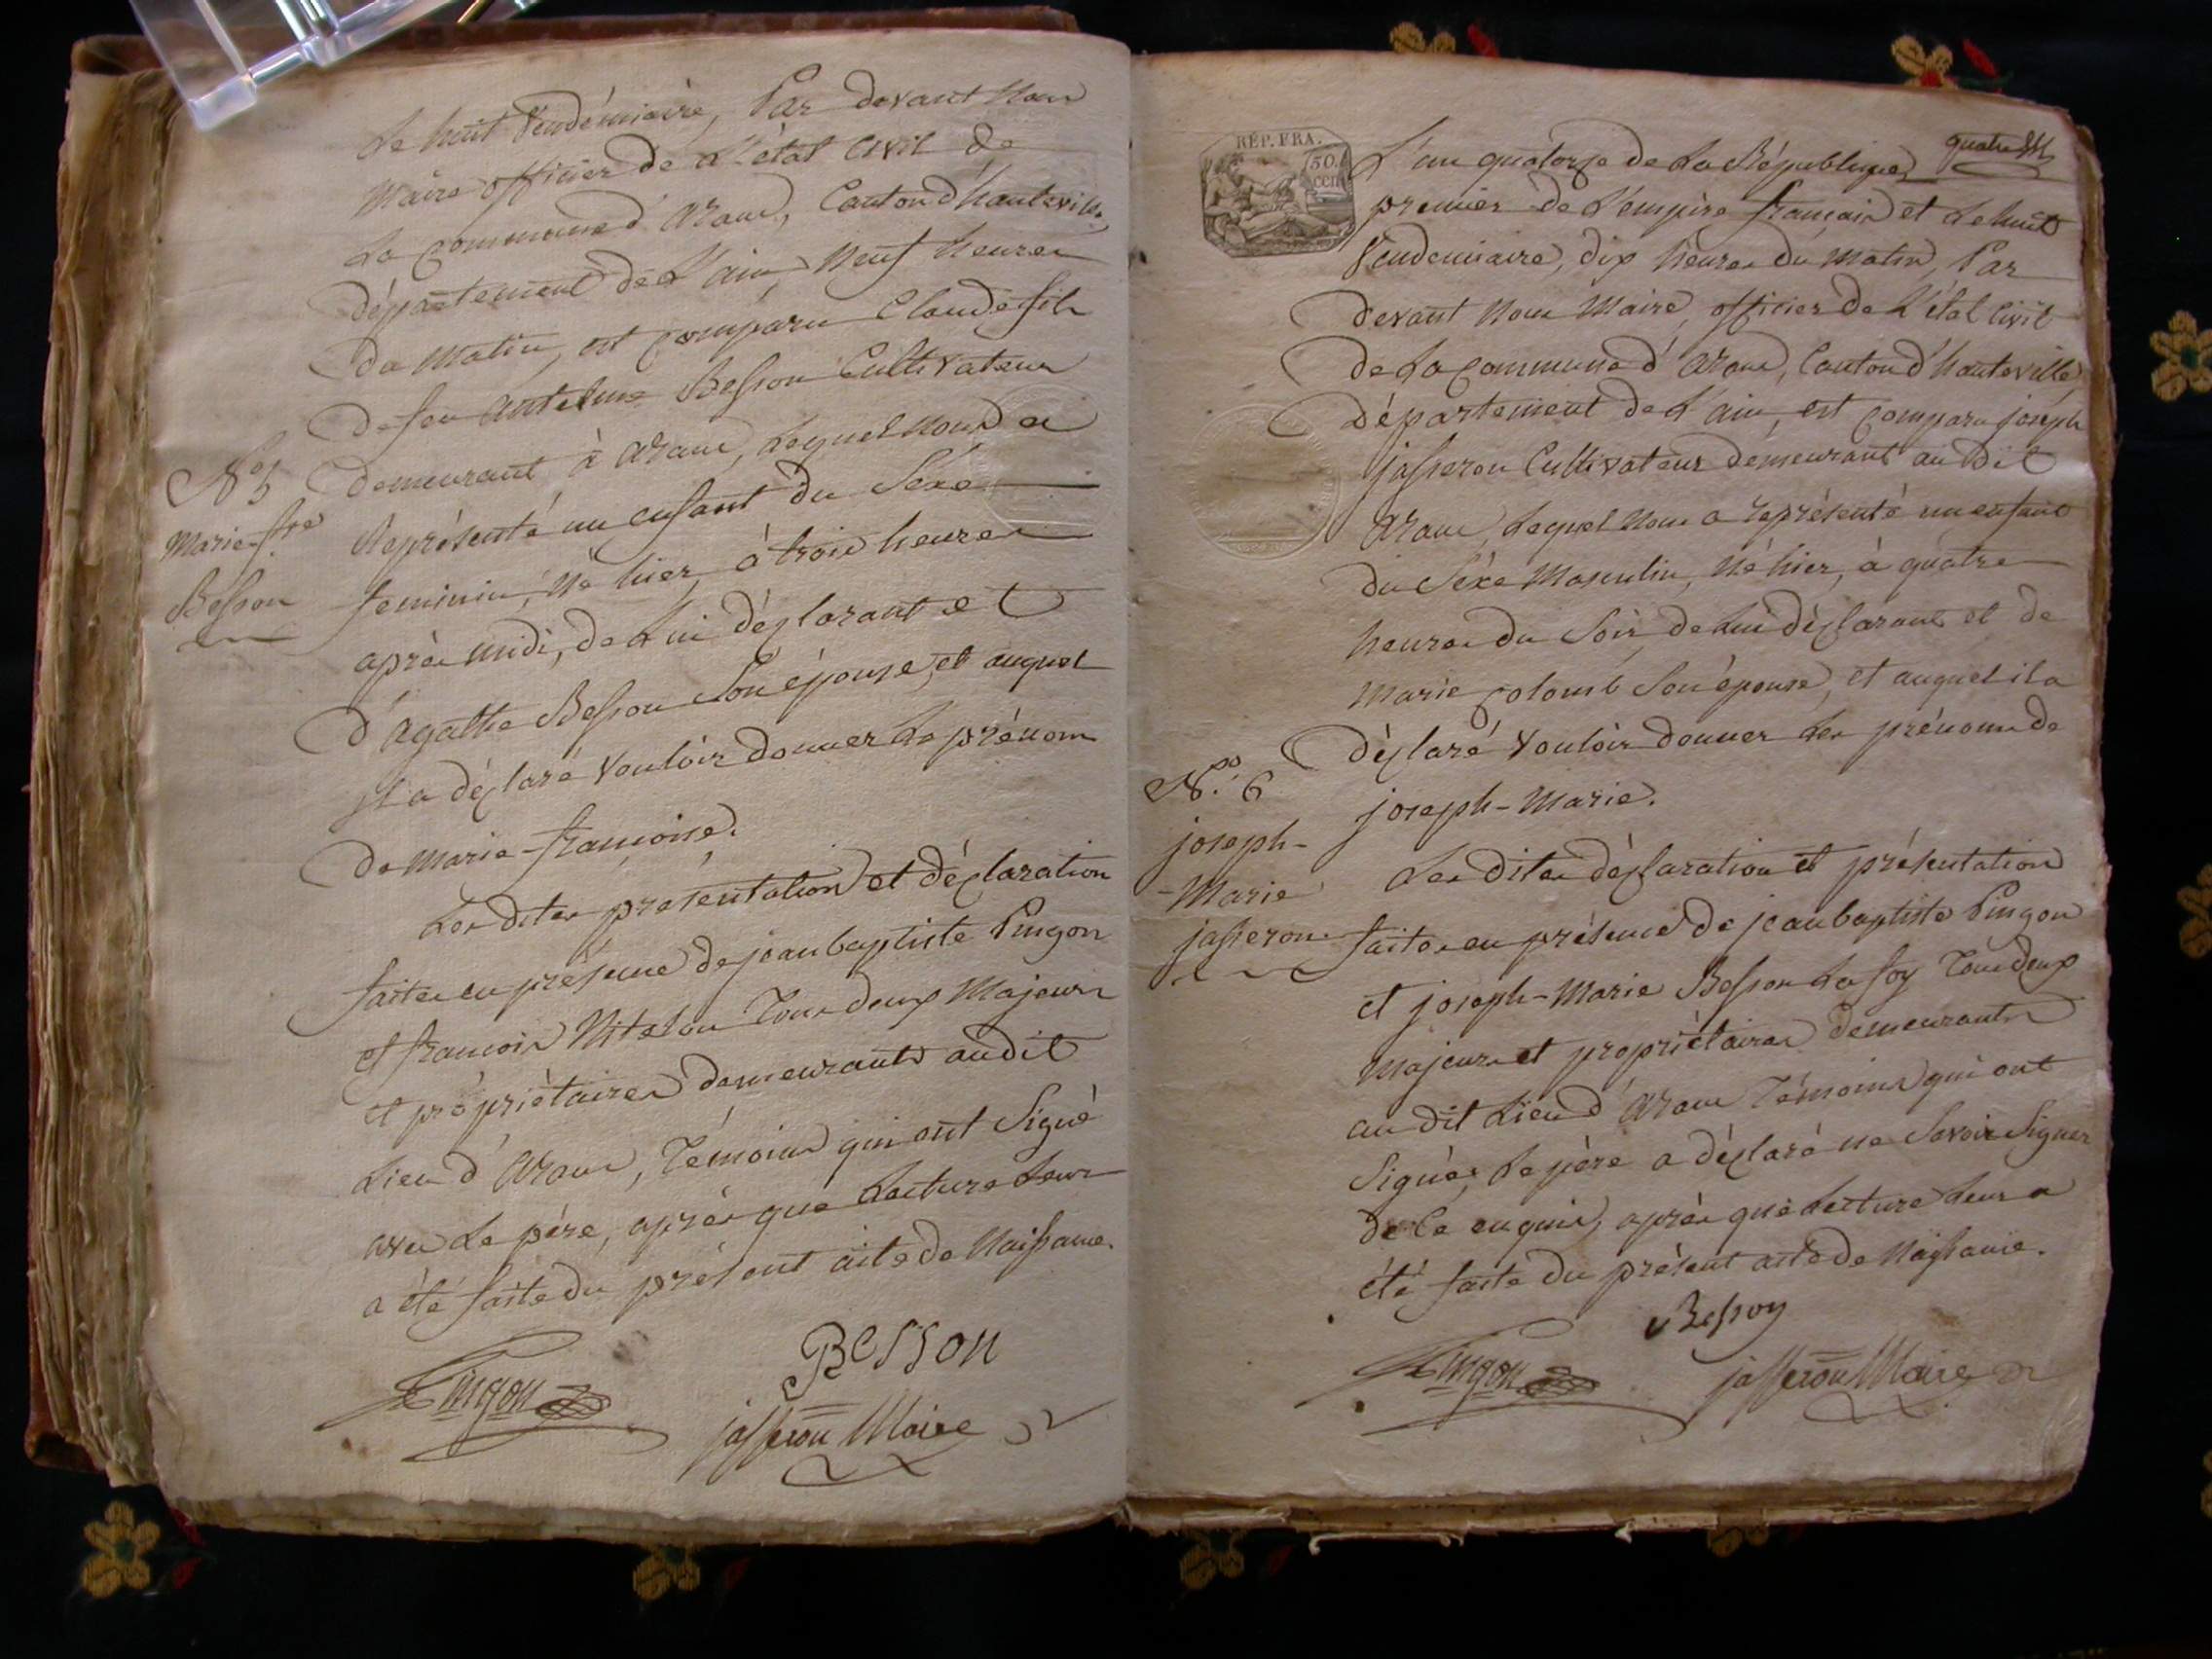 Le huit Vendémiaire, Par devant Nous
Maire officier de L'état Civil de
La commune d'Aranc, Canton d'hauteville,
département de L'ain, Neuf heures
du Matin, est comparu Claude fils
de feu Antelme Besson Cultivateur
demeurant à Aranc, Lequel Nous a
Représenté un enfant du Séxe
feminin, Né hier, à trois heures
après midi, de Lui déclarant et
d'Agathe Besson Son épouse, et auquel
il a déclaré Vouloir donner Le prénom
de Marie-françoise.
Les dites présentation et déclaration
faites en présence de jean baptiste Pingon
et françois Vitelou Tous deux Majeurs
et propriétaires demeurants au dit
Lieu d'Aranc, Témoins qui ont Signé
avec Le père, après que Lecture Leur
a été faite du présent acte de Naissance.
N° 5
Marie-fse
Besson
Pingon
Besson
jasseron Maire
RÉP. FRA.
50.
cen
quatre
L'an quatorze de La République
premier de L'empire français et Le huit
Vendemiaire, dix heures du Matin, Par
devant Nous Maire, officier de L'état Civil
de La commune d'Aranc, Canton d'hauteville
département de L'ain, est comparu joseph
jasseron Cultivateur demeurant au dit
Aranc, Lequel Nous a représenté un enfant
du Séxe Masculin, Né hier, à quatre
heures du Soir, de Lui déclarant et de
Marie colomb Son épouse, et auquel il a
déclaré Vouloir donner Les prénoms de
joseph-Marie.
Les dites déclaration et présentation
faites en présence de jean baptiste Pingon
et joseph-Marie Besson La foy Tous deux
Majeurs et propriétaires demeurants
au dit Lieu d'Aranc Témoins qui ont
Signés, Le père a déclaré ne Savoir Signer
de Ce enquis, après que Lecture Leur a
été faite du présent acte de Naissance.
N.° 6
joseph-
-Marie
jasseron.
Besson
Pingon
jasseron Maire